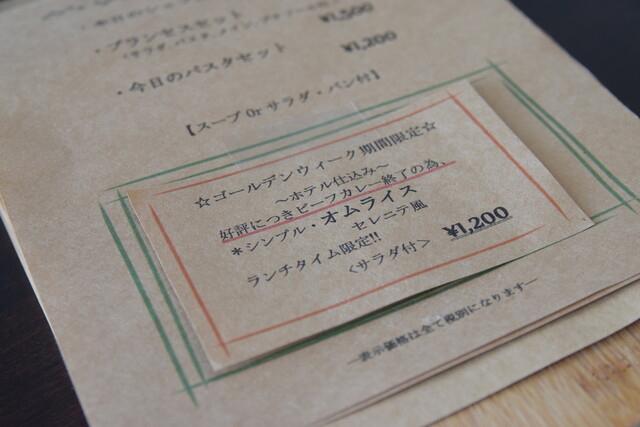 ・プランセスセット ¥1,500
・今日のパスタセット ¥1,200
【スープ or サラダ・パン付】
☆ゴールデンウィーク期間限定☆
～ホテル仕込み～
好評につきビーフカレー終了の為、
＊シンプル・オムライス
セレニテ風
ランチタイム限定!! ¥1,200
＜サラダ付＞
―表示価格は全て税別になります―